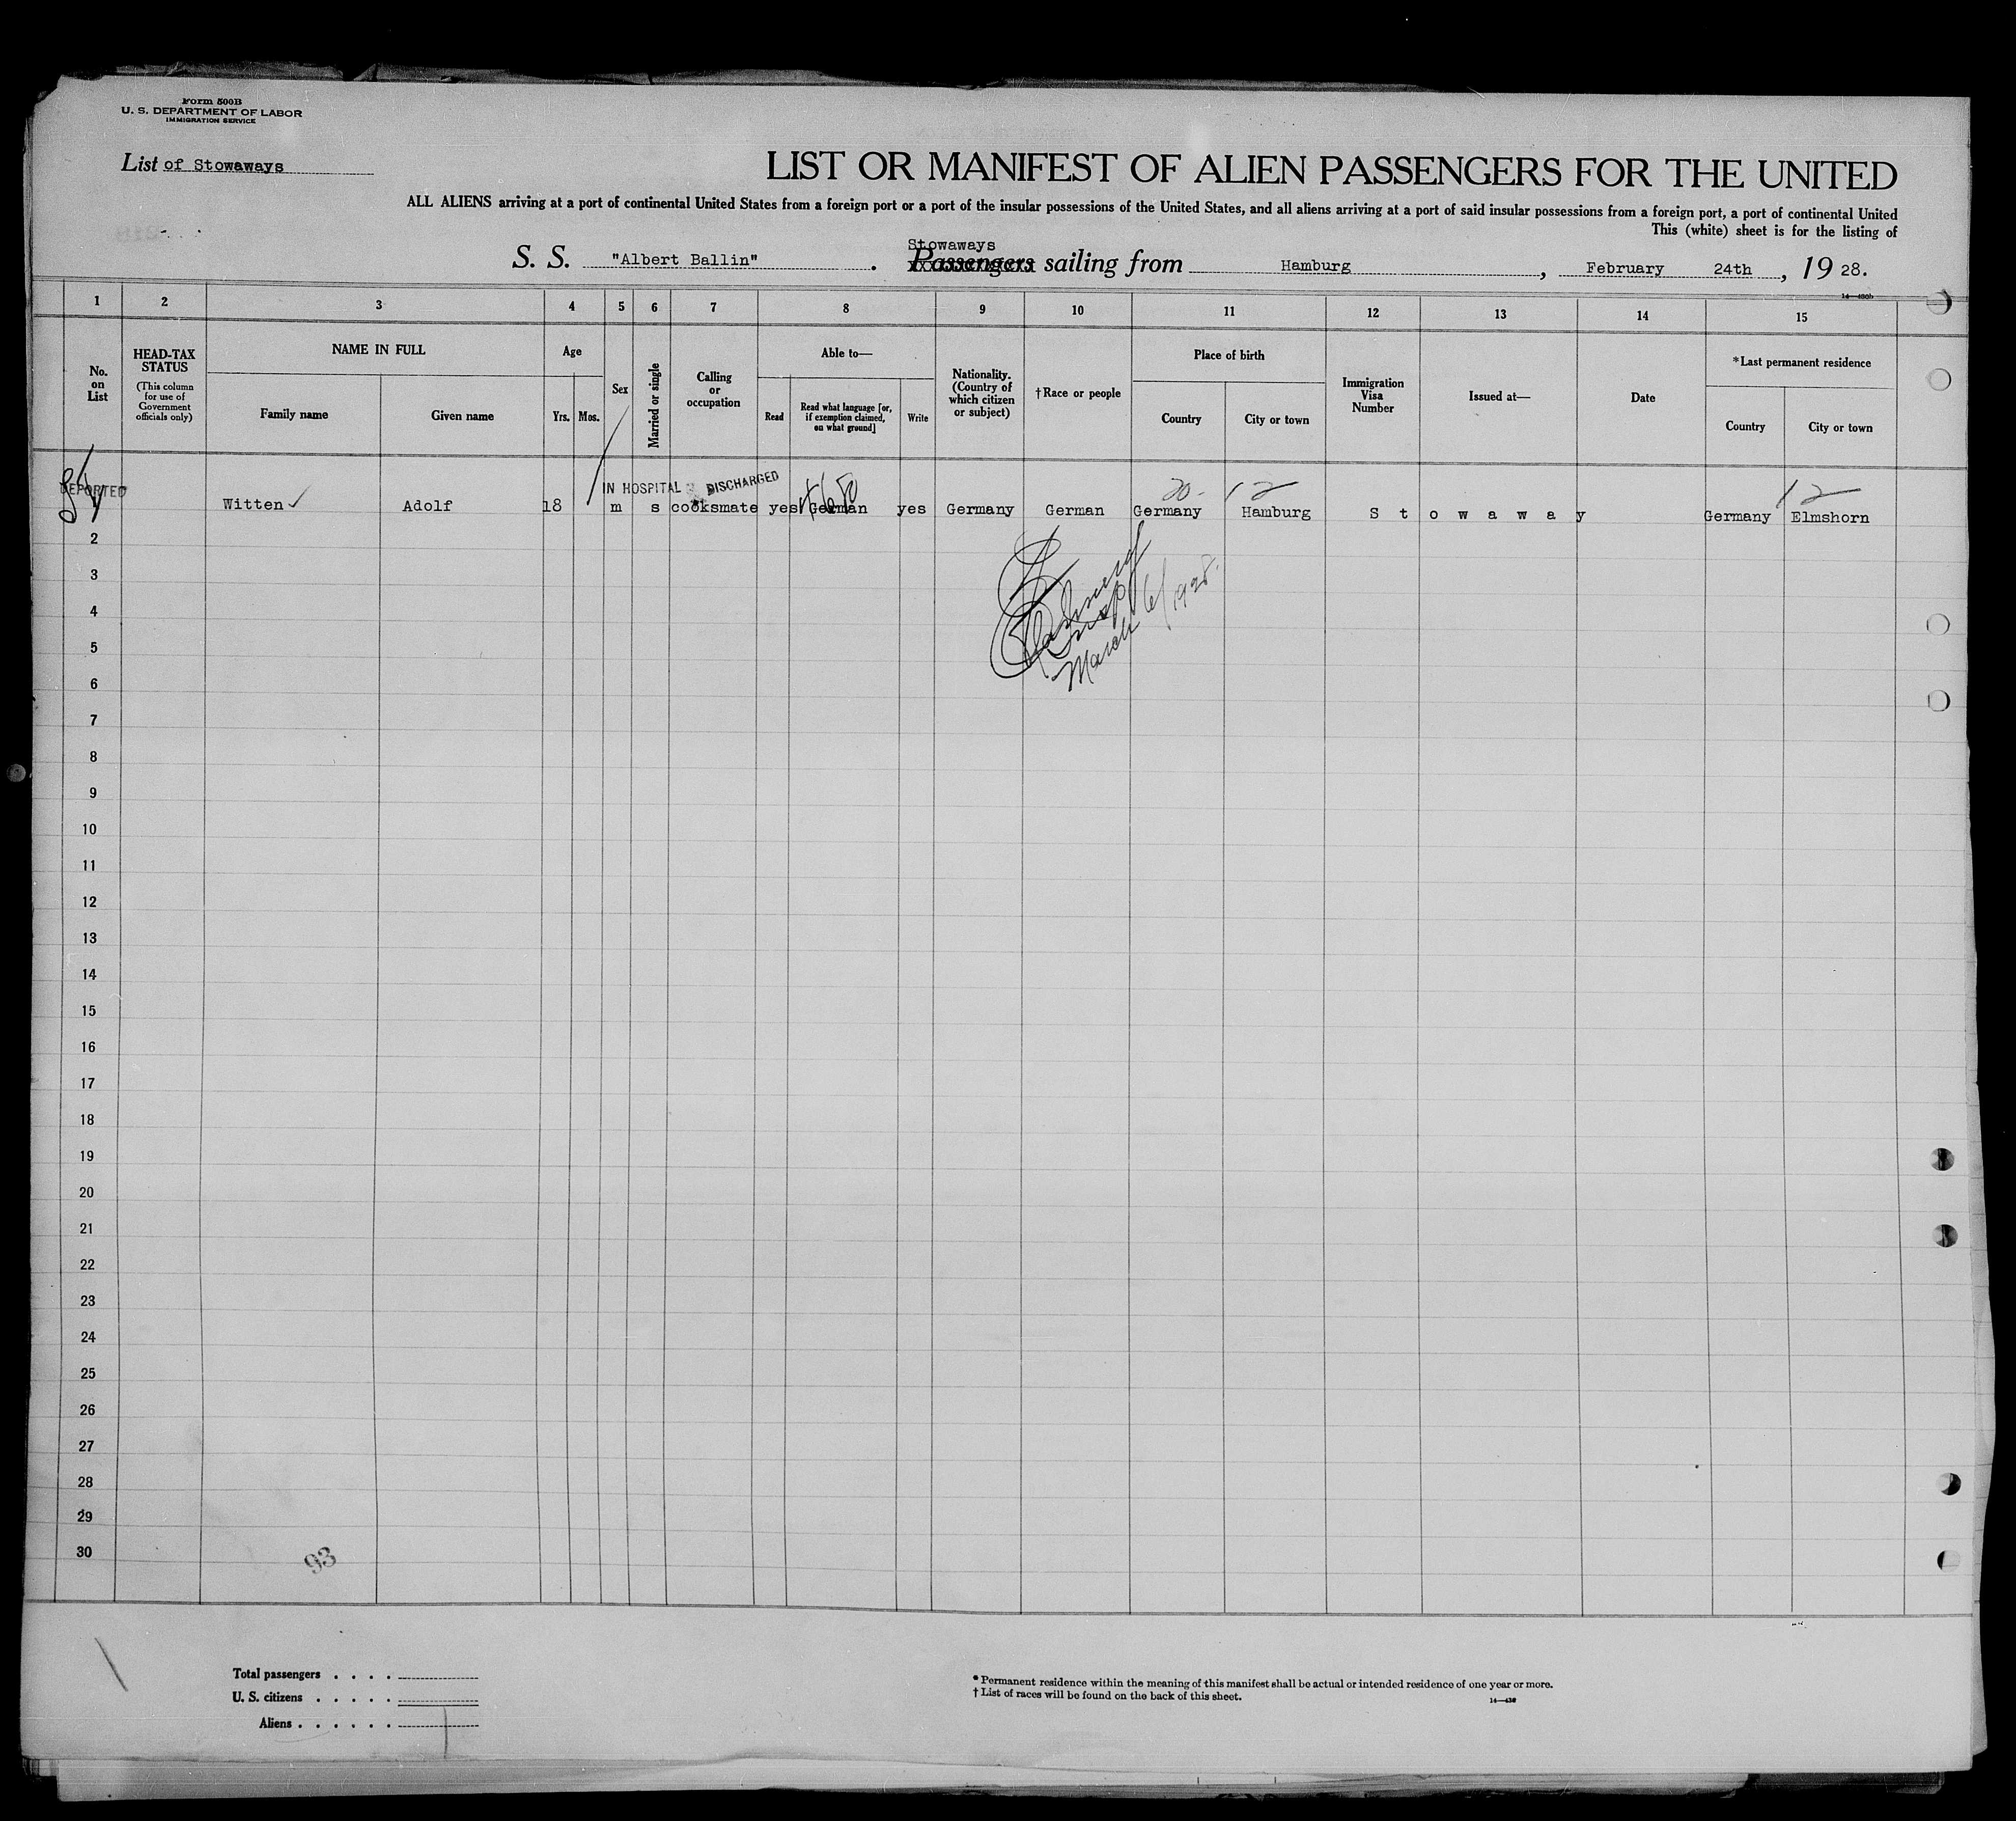 Form 500B
U. S. DEPARTMENT OF LABOR
IMMIGRATION SERVICE
List of Stowaways
LIST OR MANIFEST OF ALIEN PASSENGERS FOR THE UNITED
ALL ALIENS arriving at a port of continental United States from a foreign port or a port of the insular possessions of the United States, and all aliens arriving at a port of said insular possessions from a foreign port, a port of continental United
This (white) sheet is for the listing of
Stowaways
S. S. "Albert Ballin" . Passengers sailing from Hamburg, February 24th, 19 28.
1 2 3 4 5 6 7 8 9 10 11 12 13 14 15
No. on List
HEAD-TAX STATUS
(This column for use of Government officials only)
NAME IN FULL
Family name
Given name
Age
Yrs.
Mos.
Sex
Married or single
Calling or occupation
Able to—
Read
Read what language [or, if exemption claimed, on what ground]
Write
Nationality. (Country of which citizen or subject)
†Race or people
Place of birth
Country
City or town
Immigration Visa Number
Issued at—
Date
*Last permanent residence
Country
City or town
DEPORTED
IN HOSPITAL DISCHARGED
20- 12 12
Witten ✓ Adolf 18 m s cooksmate yes German yes Germany German Germany Hamburg S t o w a w a y Germany Elmshorn
March 6/1928.
2
3
4
5
6
7
8
9
10
11
12
13
14
15
16
17
18
19
20
21
22
23
24
25
26
27
28
29
30
93
Total passengers . . . .
U. S. citizens . . . . .
Aliens . . . . . .
* Permanent residence within the meaning of this manifest shall be actual or intended residence of one year or more.
† List of races will be found on the back of this sheet.